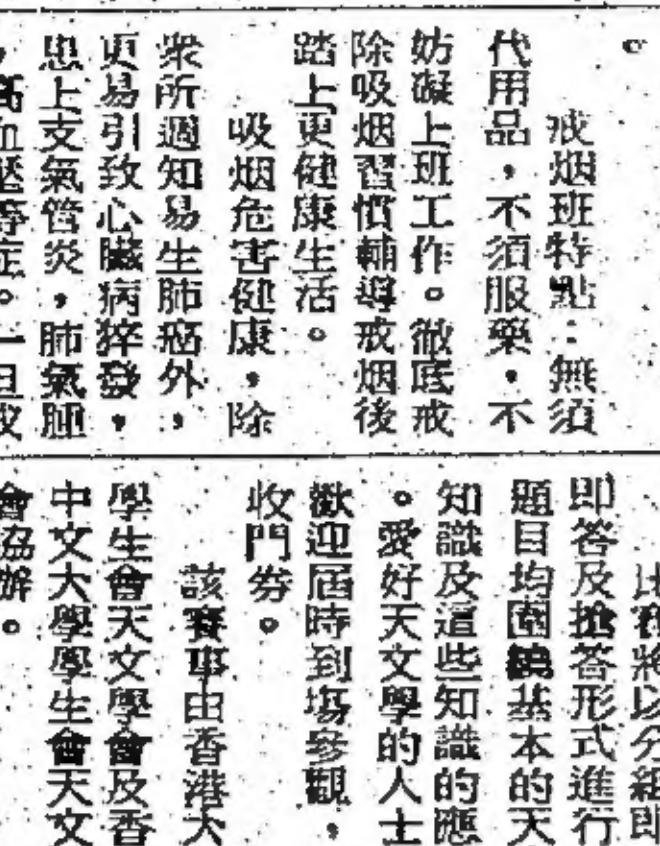 戒烟班特點：無須
代用品，不須服藥，不
妨礙上班工作。徹底戒
除吸烟習慣輔導戒烟後
踏上更健康生活。
吸烟危害健康，除
衆所週知易生肺癌外，
更易引致心臟病猝發，
患上支氣管炎，肺氣腫
，高血壓等症。一旦
比賽將以分組即
即答及搶答形式進行
題目均圍繞基本的天
知識及這些知識的應
。愛好天文學的人士
歡迎屆時到場參觀，
收門券。
該賽事由香港大
學生會天文學會及香
中文大學學生會天文
會協辦。